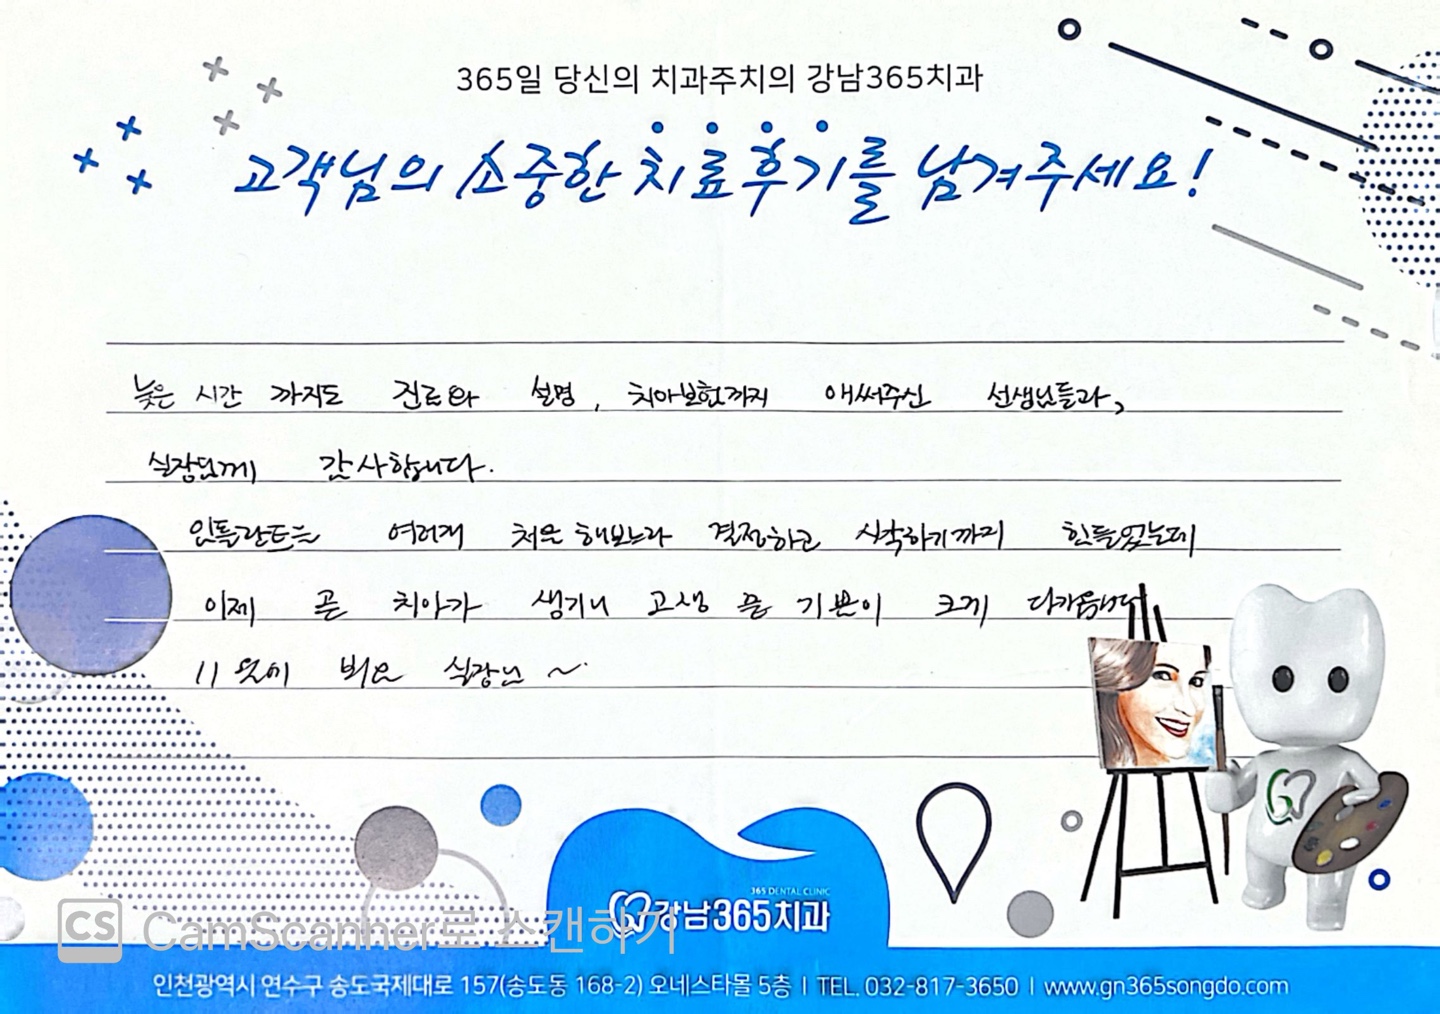 365일 당신의 치과주치의 강남365치과
고객님의 소중한 치료후기를 남겨주세요!
늦은 시간 까지도 진료와 설명, 치아보험까지 애써주신 선생님들과,
실장님께 감사합니다.
임플란트는 여러개 처음 해보느라 결정하고 시작하기까지 힘들었는데
이제 곧 치아가 생기니 고생 끝 기분이 크게 다가옵니다
11월에 봬요 실장님 ~
365 DENTAL CLINIC
강남365치과
CS CamScanner로 스캔하기
인천광역시 연수구 송도국제대로 157(송도동 168-2) 오네스타몰 5층 | TEL. 032-817-3650 | www.gn365songdo.com